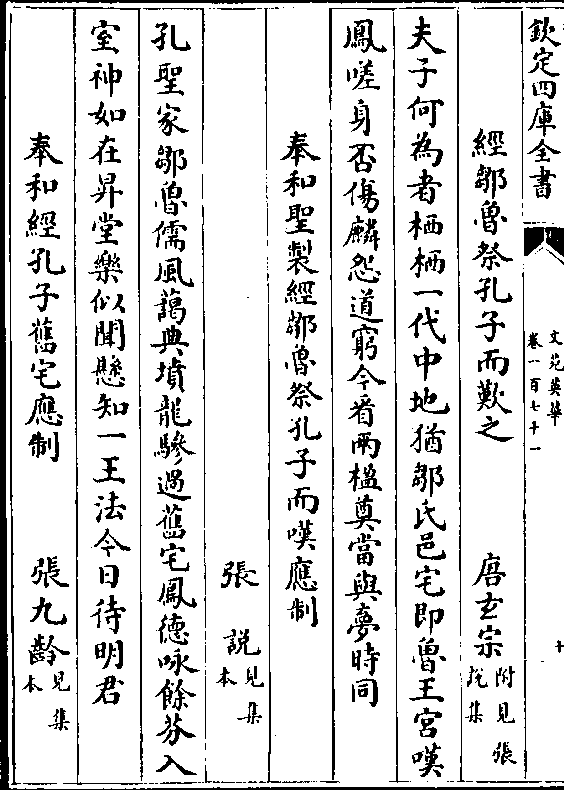 欽定四庫全書
文苑英華
卷一百七十一
十
經鄒魯祭孔子而歎之 唐玄宗 附見張說集
夫子何為者栖栖一代中地猶鄒氏邑宅即魯王宮嘆
鳳嗟身否傷麟怨道窮今看兩楹奠當與夢時同
奉和聖製經鄒魯祭孔子而嘆應制
張說 見集本
孔聖家鄒魯儒風藹典墳龍驂過舊宅鳳德咏餘芬入
室神如在昇堂樂似聞懸知一王法今日待明君
奉和經孔子舊宅應制 張九齡 見集本